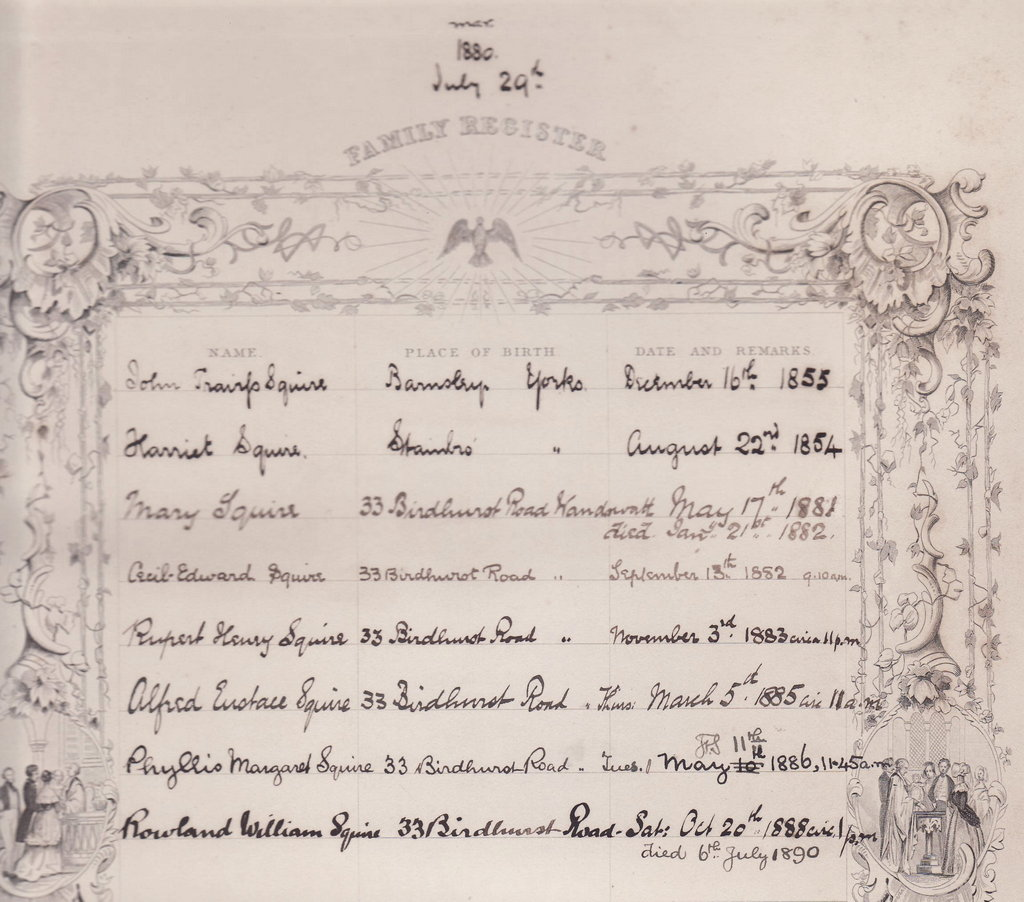 mar.
1880.
July 29th
FAMILY REGISTER
NAME. PLACE OF BIRTH DATE AND REMARKS.
John Squire Yorks. December 16th 1855
Harriet Squire. Stainbro' " August 22nd 1854
Mary Squire 33 Birdhurst Road Wandswth May 17th 1881
died Jany 21st 1882.
Cecil Edward Squire 33 Birdhurst Road " September 13th 1882 9.10 am.
Rupert Henry Squire 33 Birdhurst Road " November 3rd 1883 circa 11 p.m
Alfred Eustace Squire 33 Birdhurst Road " Thurs: March 5th 1885 circ 11 a.m
11th
Phyllis Margaret Squire 33 Birdhurst Road " Tues. May 10th 1886, 11.45 a.m
Rowland William Squire 33 Birdhurst Road - Sat: Oct 20th 1888 circ 1 p.m
died 6th July 1890